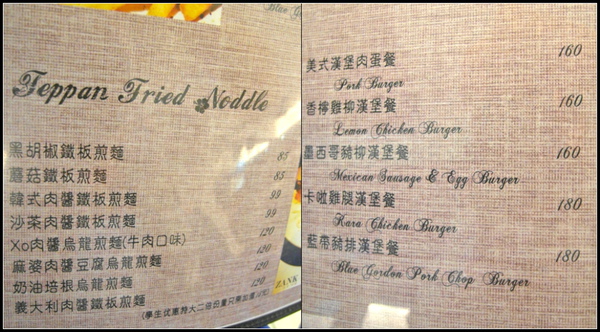 Blue Go
Teppan Fried Noddle
黑胡椒鐵板煎麵 85
蘑菇鐵板煎麵 85
韓式肉醬鐵板煎麵 99
沙茶肉醬鐵板煎麵 99
Xo肉醬烏龍煎麵(牛肉口味) 120
麻婆肉醬豆腐烏龍煎麵 120
奶油培根烏龍煎麵 120
義大利肉醬鐵板煎麵 120
ZANK
美式漢堡肉蛋餐 160
Pork Burger
香檸雞柳漢堡餐 160
Lemon Chicken Burger
墨西哥豬柳漢堡餐 160
Mexican Sausage & Egg Burger
卡啦雞腿漢堡餐 180
Kara Chicken Burger
藍帶豬排漢堡餐 180
Blue Gordon Pork Chop Burger